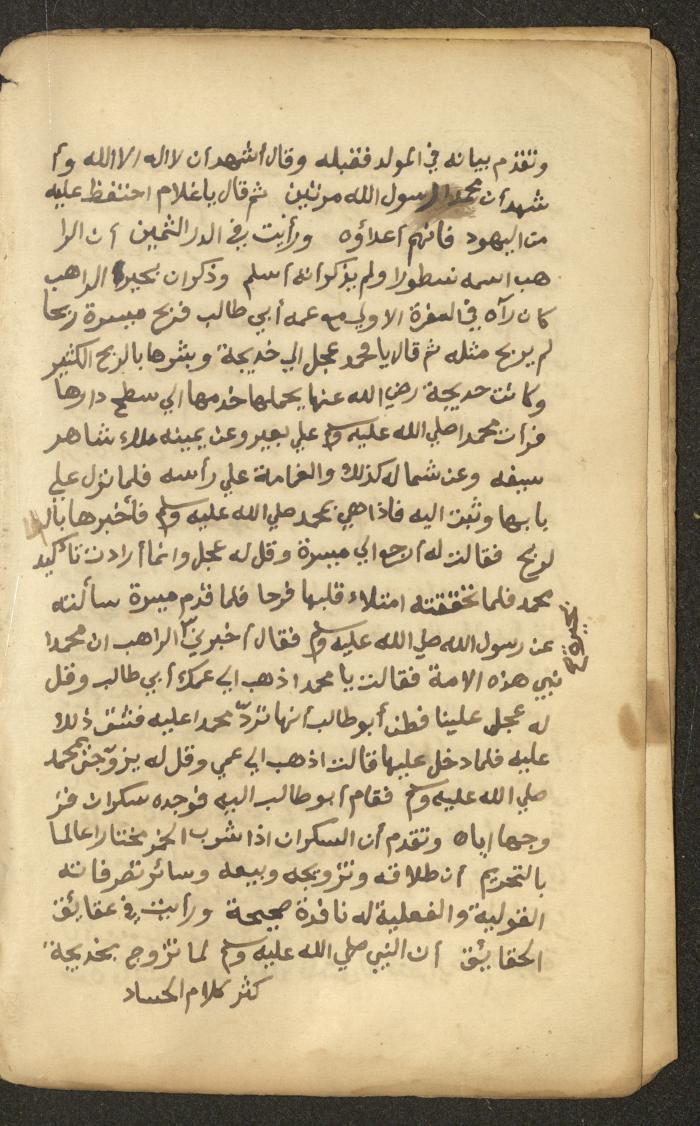 وتقدم بيانه في المولد فقبله وقال أشهد أن لا اله الا الله وأ
شهد أن محمدا رسول الله مرتين ثم قال يا غلام احتفظ عليه
من اليهود فانهم أعداؤه ورأيت في الدر الثمين أن الرا
هب اسمه نسطورا ولم يذكر أنه أسلم وذكر ان بحيرا الراهب
كان رآه في السفرة الاولي مع عمه أبي طالب فربح ميسرة ربحا
لم يربح مثله ثم قال يا محمد عجل الي خديجة وبشرها بالربح الكثير
وكانت خديجة رضي الله عنها يحملها خدمها الي سطح دارها
فرأت محمدا صلي الله عليه وسلم علي بعير وعن يمينه ملاء شاهر
سيفه وعن شماله كذلك والغمامة علي رأسه فلما نزل علي
بابها وثبت اليه فاذا هي بمحمد صلي الله عليه وسلم فأخبرها بال
لربح فقالت له ارجع الي ميسرة وقل له عجل وانما أرادت تأكيد
محمد فلما تحققته امتلاء قلبها فرحا فلما قدم ميسرة سألته
عن رسول الله صلي الله عليه وسلم فقال أخبرني الراهب ان محمدا
نبي هذه الامة فقالت يا محمد اذهب الي عمك أبي طالب وقل
له عجل علينا فظن أبو طالب أنها تردّ محمدا عليه فشق ذلك
عليه فلما دخل عليها قالت اذهب الي عمي وقل له يزوّجني بمحمد
صلي الله عليه وسلم فقام أبو طالب اليه فوجده سكران فز
وجها اياه وتقدم أن السكران اذا شرب الخمر مختارا عالما
بالتحريم أن طلاقه وتزويجه وبيعه وسائر تصرفاته
القولية والفعلية له نافذة صحيحة ورأيت في عقائق
الحقايق أن النبي صلي الله عليه وسلم لما تزوج بخديجة
كثر كلام الحساد